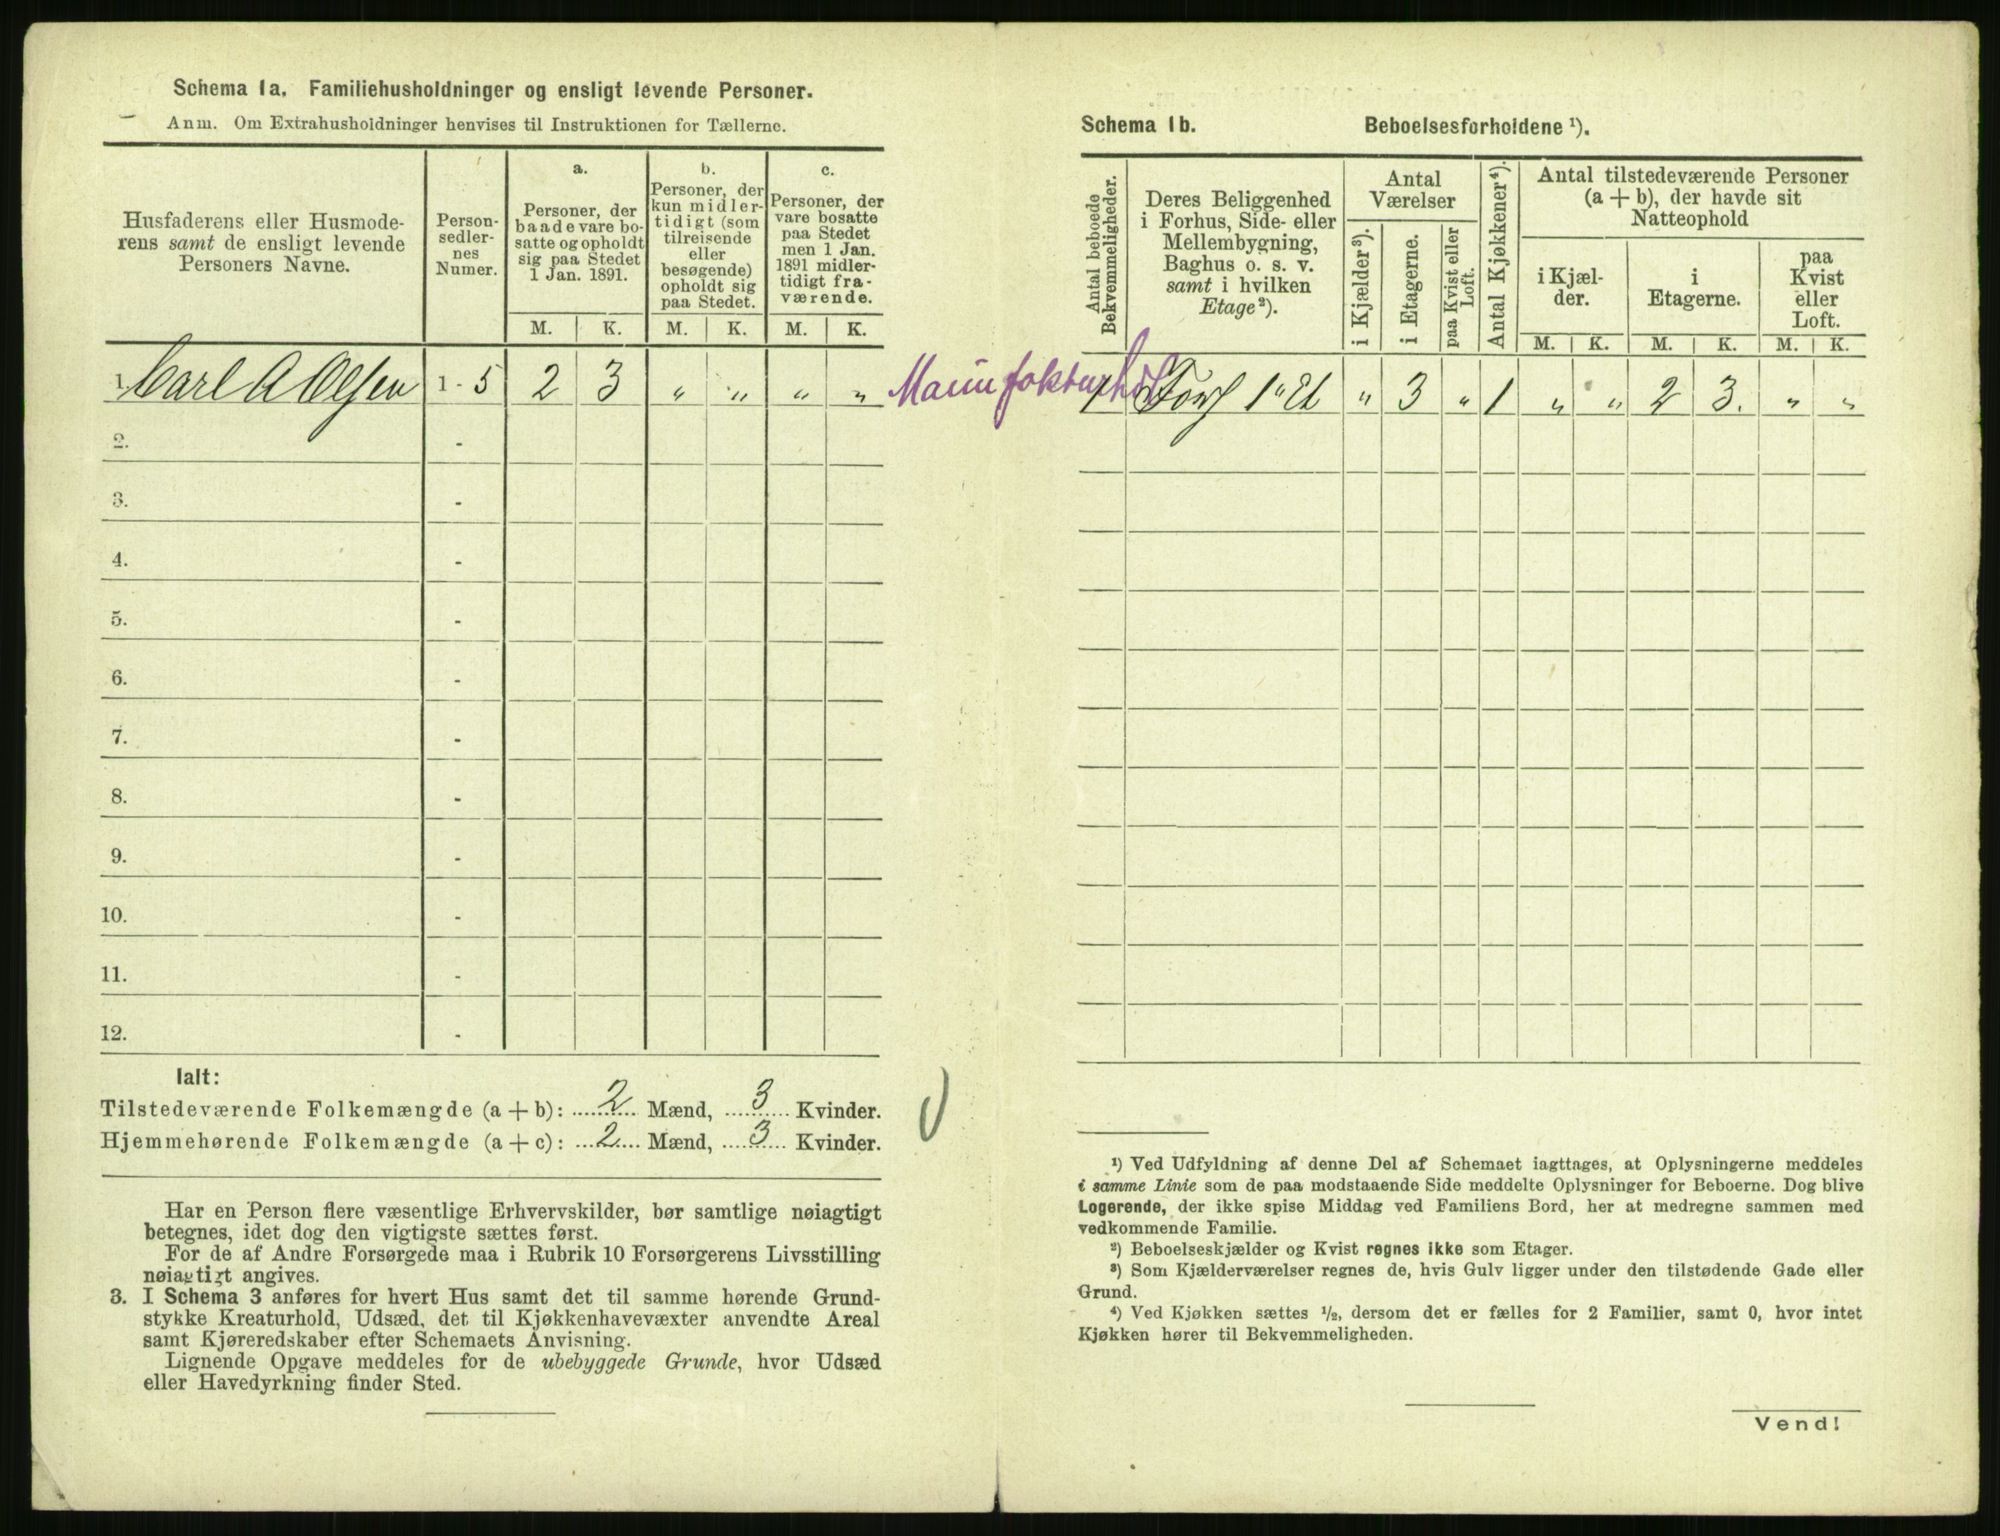 Schema 1a. Familiehusholdninger og ensligt levende Personer.
Anm. Om Extrahusholdninger henvises til Instruktionen for Tællerne.
Husfaderens eller Husmode-
rens samt de ensligt levende
Personers Navne.
Person-
sedler-
nes
Numer.
a.
Personer, der
baade vare bo-
satte og opholdt
sig paa Stedet
1 Jan. 1891.
b.
Personer, der
kun midler-
tidigt (som
tilreisende
eller
besøgende)
opholdt sig
paa Stedet.
c.
Personer, der
vare bosatte
paa Stedet
men 1 Jan.
1891 midler-
tidigt fra-
værende.
M. K. M. K. M. K.
1 Carl A Olsen 1 - 5 2 3 " " " "
2. -
3. -
4. -
5. -
6. -
7. -
8. -
9. -
10. -
11. -
12. -
Ialt:
Tilstedeværende Folkemængde (a + b): 2 Mænd, 3 Kvinder.
Hjemmehørende Folkemængde (a + c): 2 Mænd, 3 Kvinder.
Har en Person flere væsentlige Erhvervskilder, bør samtlige nøiagtigt
betegnes, idet dog den vigtigste sættes først.
For de af Andre Forsørgede maa i Rubrik 10 Forsørgerens Livsstilling
nøiagtigt angives.
3. I Schema 3 anføres for hvert Hus samt det til samme hørende Grund-
stykke Kreaturhold, Udsæd, det til Kjøkkenhavevæxter anvendte Areal
samt Kjøreredskaber efter Schemaets Anvisning.
Lignende Opgave meddeles for de ubebyggede Grunde, hvor Udsæd
eller Havedyrkning finder Sted.
Schema 1b. Beboelsesforholdene ¹).
Antal beboede
Bekvemmeligheder.
Deres Beliggenhed
i Forhus, Side- eller
Mellembygning,
Baghus o. s. v.
samt i hvilken
Etage²).
Antal
Værelser
i Kjælder³).
i Etagerne.
paa Kvist eller
Loft.
Antal Kjøkkener⁴).
Antal tilstedeværende Personer
(a + b), der havde sit
Natteophold
i Kjæl-
der.
i
Etagerne.
paa
Kvist
eller
Loft.
M. K. M. K. M. K.
1 Forh 1ste Et " 3 " 1 " " 2 3. " "
¹) Ved Udfyldning af denne Del af Schemaet iagttages, at Oplysningerne meddeles
i samme Linie som de paa modstaaende Side meddelte Oplysninger for Beboerne. Dog blive
Logerende, der ikke spise Middag ved Familiens Bord, her at medregne sammen med
vedkommende Familie.
²) Beboelseskjælder og Kvist regnes ikke som Etager.
³) Som Kjælderværelser regnes de, hvis Gulv ligger under den tilstødende Gade eller
Grund.
⁴) Ved Kjøkken sættes ½, dersom det er fælles for 2 Familier, samt 0, hvor intet
Kjøkken hører til Bekvemmeligheden.
Vend!